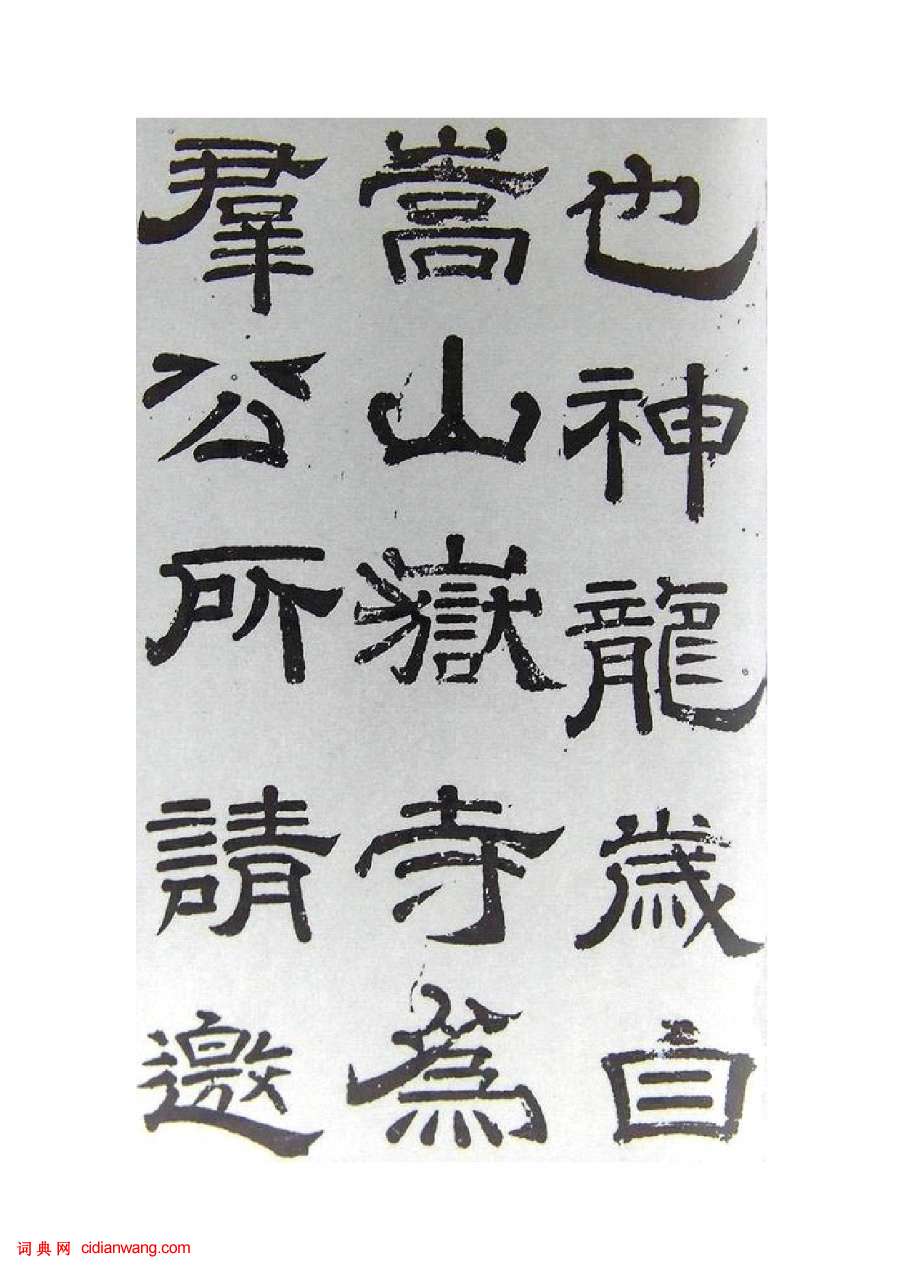 也神龍歲自
嵩山嶽寺為
羣公所請邀
词典网 cidianwang.com